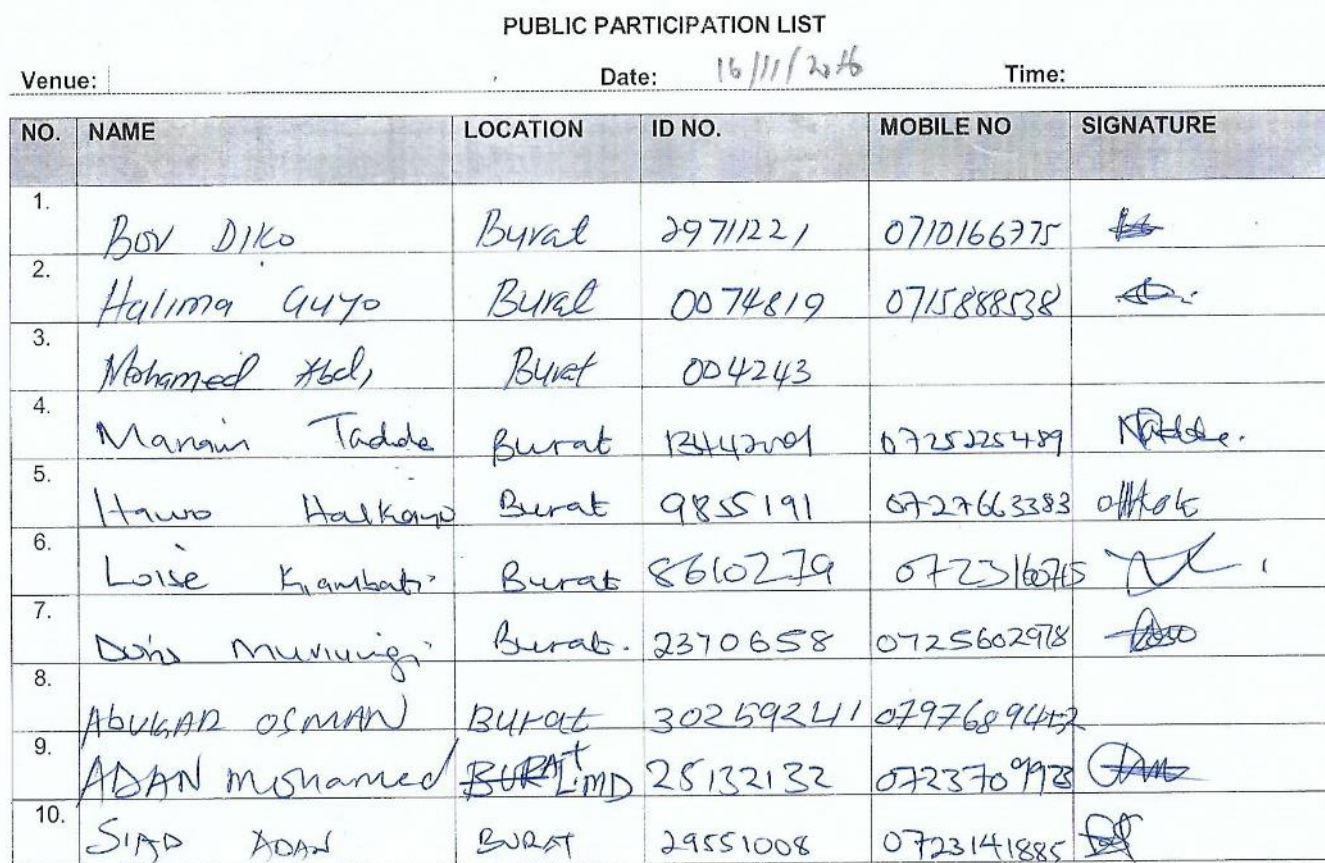 PUBLIC PARTICIPATION LIST
Venue: Date: 16/11/2016 Time:
NO. NAME LOCATION ID NO. MOBILE NO SIGNATURE
1. Bov DIKO Burat 29711221 0710166775
2. Halima Guyo Burat 0074819 0715888538
3. Mohamed Abdi Burat 004243
4. Tadde Burat 0725225489
5. Hawo Halkano Burat 9855191 0727663383
6. Loise Kiambati Burat 8610279
7. Burat. 2370658 0725602978
8. Abukar OSMAN Burat 30259241
9. ADAN Mohamed 25132132
10. SIAD ADAN BURAT 29551008 0723141885